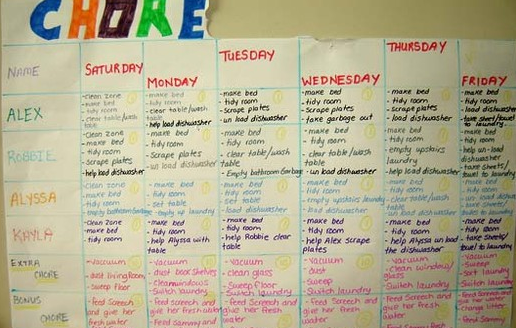 CHORE
NAME
SATURDAY
MONDAY
TUESDAY
WEDNESDAY
THURSDAY
FRIDAY
ALEX
-clean zone
-make bed
-tidy room
-clear table/wash
table
-make bed
-tidy room
-clear table/wash
table
-help load dishwasher
-make bed
-tidy room
-scrape plates
-un load dishwasher
-make bed
-tidy room
-Scrape plates
-take garbage out
-make bed
-tidy room
-Scrape plates
-load dishwasher
-make bed
-tidy room
-load dishwasher
-take sheets/towel
to laundry
ROBBIE
-Clean zone
-make bed
-tidy room
-Scrape plates
-help load dishwasher
-make bed
-tidy room
-Scrape plates
-un load dishwasher
-make bed
-tidy room
-clear table/wash
table
-Empty bathroom Garbage
-make bed
-tidy room
-clear table/wash
table
-un load dishwasher
-make bed
-tidy room
-empty upstairs
laundry
-help load dishwasher
-make bed
-tidy room
-help un-load
dishwasher
-take sheets/
towel to laundry
ALYSSA
-Clean zone
-make bed
-tidy room
-empty bathroom Garbage
-make bed
-tidy room
-set table
-empty up laundry
-make bed
-tidy room
-Set table
-load dishwasher
-make bed
-tidy room
-empty upstairs laundry
-load dishwasher
-make bed
-tidy room
-clear table/wash
table
-un load dishwasher
-make bed
-tidy room
KAYLA
-Clean zone
-make bed
-tidy room
-make bed
-tidy room
-help Alyssa with
table
-make bed
-tidy room
-help Robbie clear
table
-make bed
-tidy room
-help Alex scrape
plates
-make bed
-tidy room
-help Alyssa un load
the dishwasher
-make bed
-tidy room
-take sheets/
towel to laundry
EXTRA
CHORE
-vacuum
-dust livingroom
-sweep floor
-vacuum
-dust book shelves
-Switch laundry
-vacuum
-clean glass
-Sweep floor
-Switch laundry
-vacuum
-dust
-Sweep
-Switch laundry
-vacuum
-clean window/
glass
-Switch laundry
-vacuum
-Sweep
-Sort laundry
-Switch laundry
BONUS
CHORE
-feed Screech
and give her
fresh water
-feed Screech and
give her fresh water
-feed Sammy and
-feed Screech and
give her fresh
water
-feed Screech and
give her fresh
water
-feed Screech
and give her
fresh water
-feed Screech
and give her